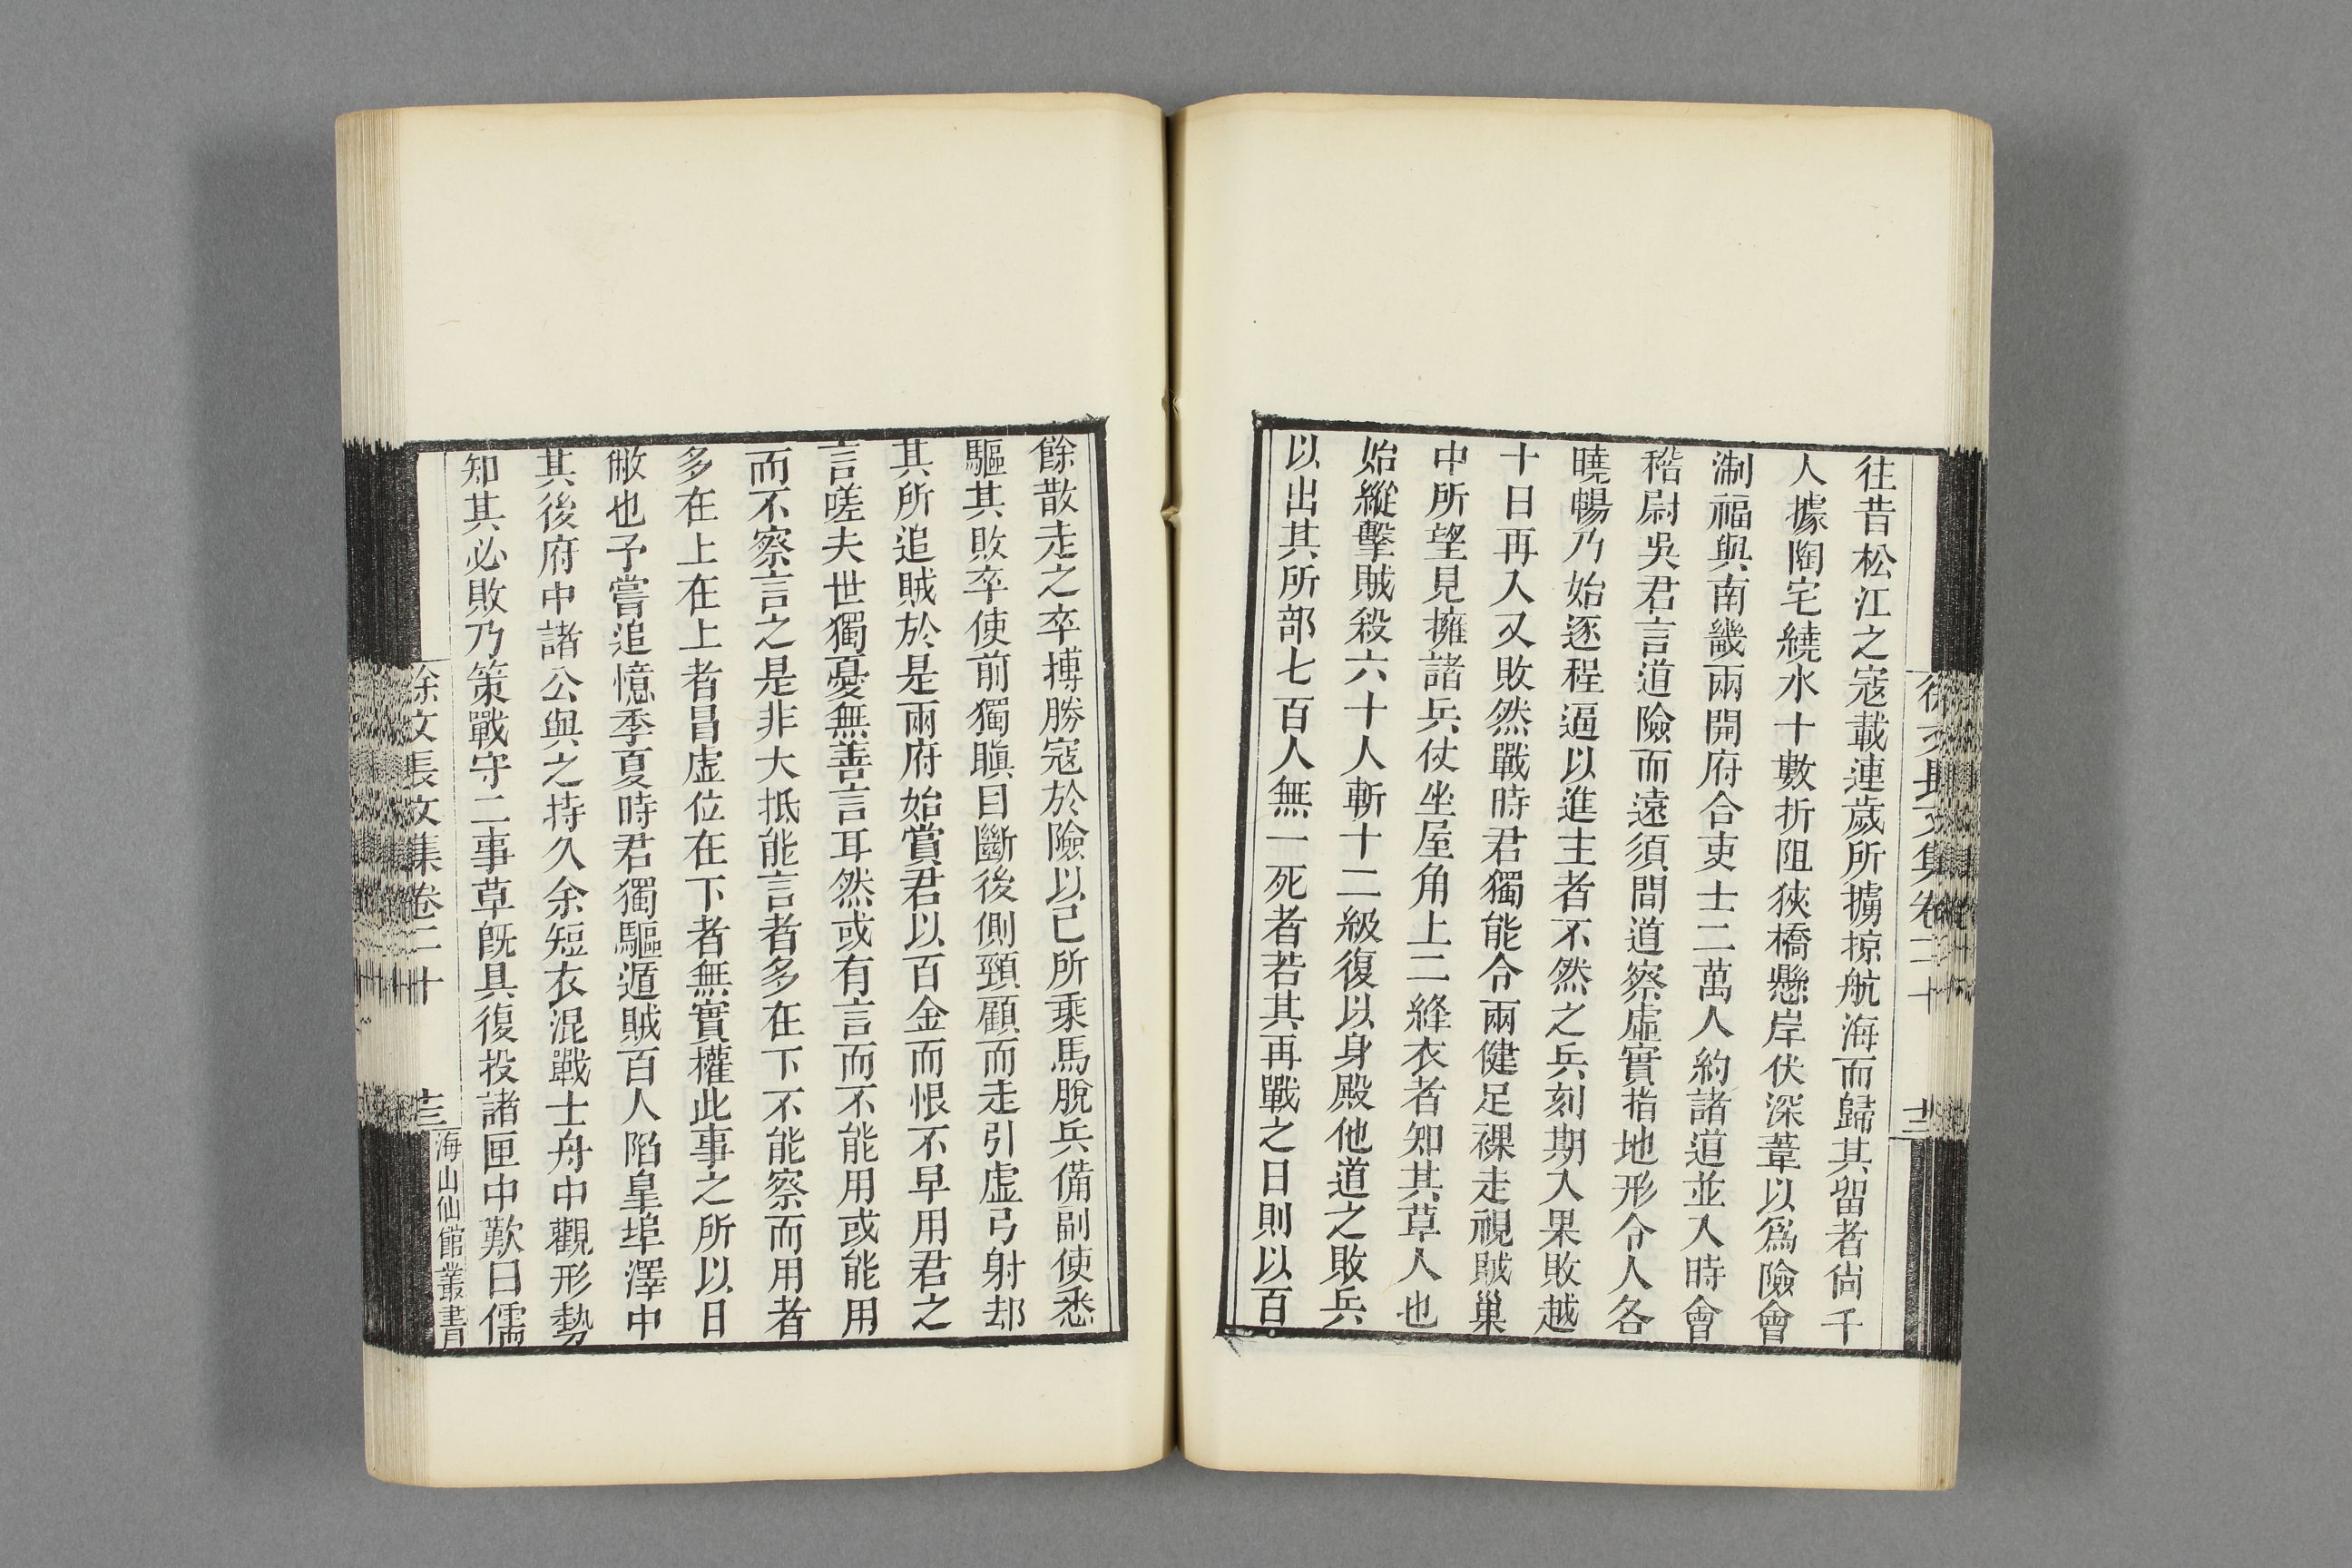 徐文長文集卷二十
往昔松江之寇載連歲所擄掠航海而歸其留者尙千
人據陶宅繞水十數折阻狹橋懸岸伏深葦以爲險會
淛福與南畿兩開府合吏士二萬人約諸道並入時會
稽尉吳君言道險而遠須間道察虛實指地形令人各
曉暢乃始逐程逼以進主者不然之兵刻期入果敗越
十日再入又敗然戰時君獨能令兩健足裸走視賊巢
中所望見擁諸兵仗坐屋角上二絳衣者知其草人也
始縱擊賊殺六十人斬十二級復以身殿他道之敗兵
以出其所部七百人無一死者若其再戰之日則以百
餘散走之卒搏勝寇於險以己所乘馬脫兵備副使悉
驅其敗卒使前獨瞋目斷後側頸顧而走引虛弓射却
其所追賊於是兩府始賞君以百金而恨不早用君之
言嗟夫世獨憂無善言耳然或有言而不能用或能用
而不察言之是非大抵能言者多在下不能察而用者
多在上在上者冒虛位在下者無實權此事之所以日
敝也予嘗追憶季夏時君獨驅遁賊百人陷皇埠澤中
其後府中諸公與之持久余短衣混戰士舟中觀形勢
知其必敗乃策戰守二事草旣具復投諸匣中歎曰儒
徐文長文集卷二十
海山仙館叢書